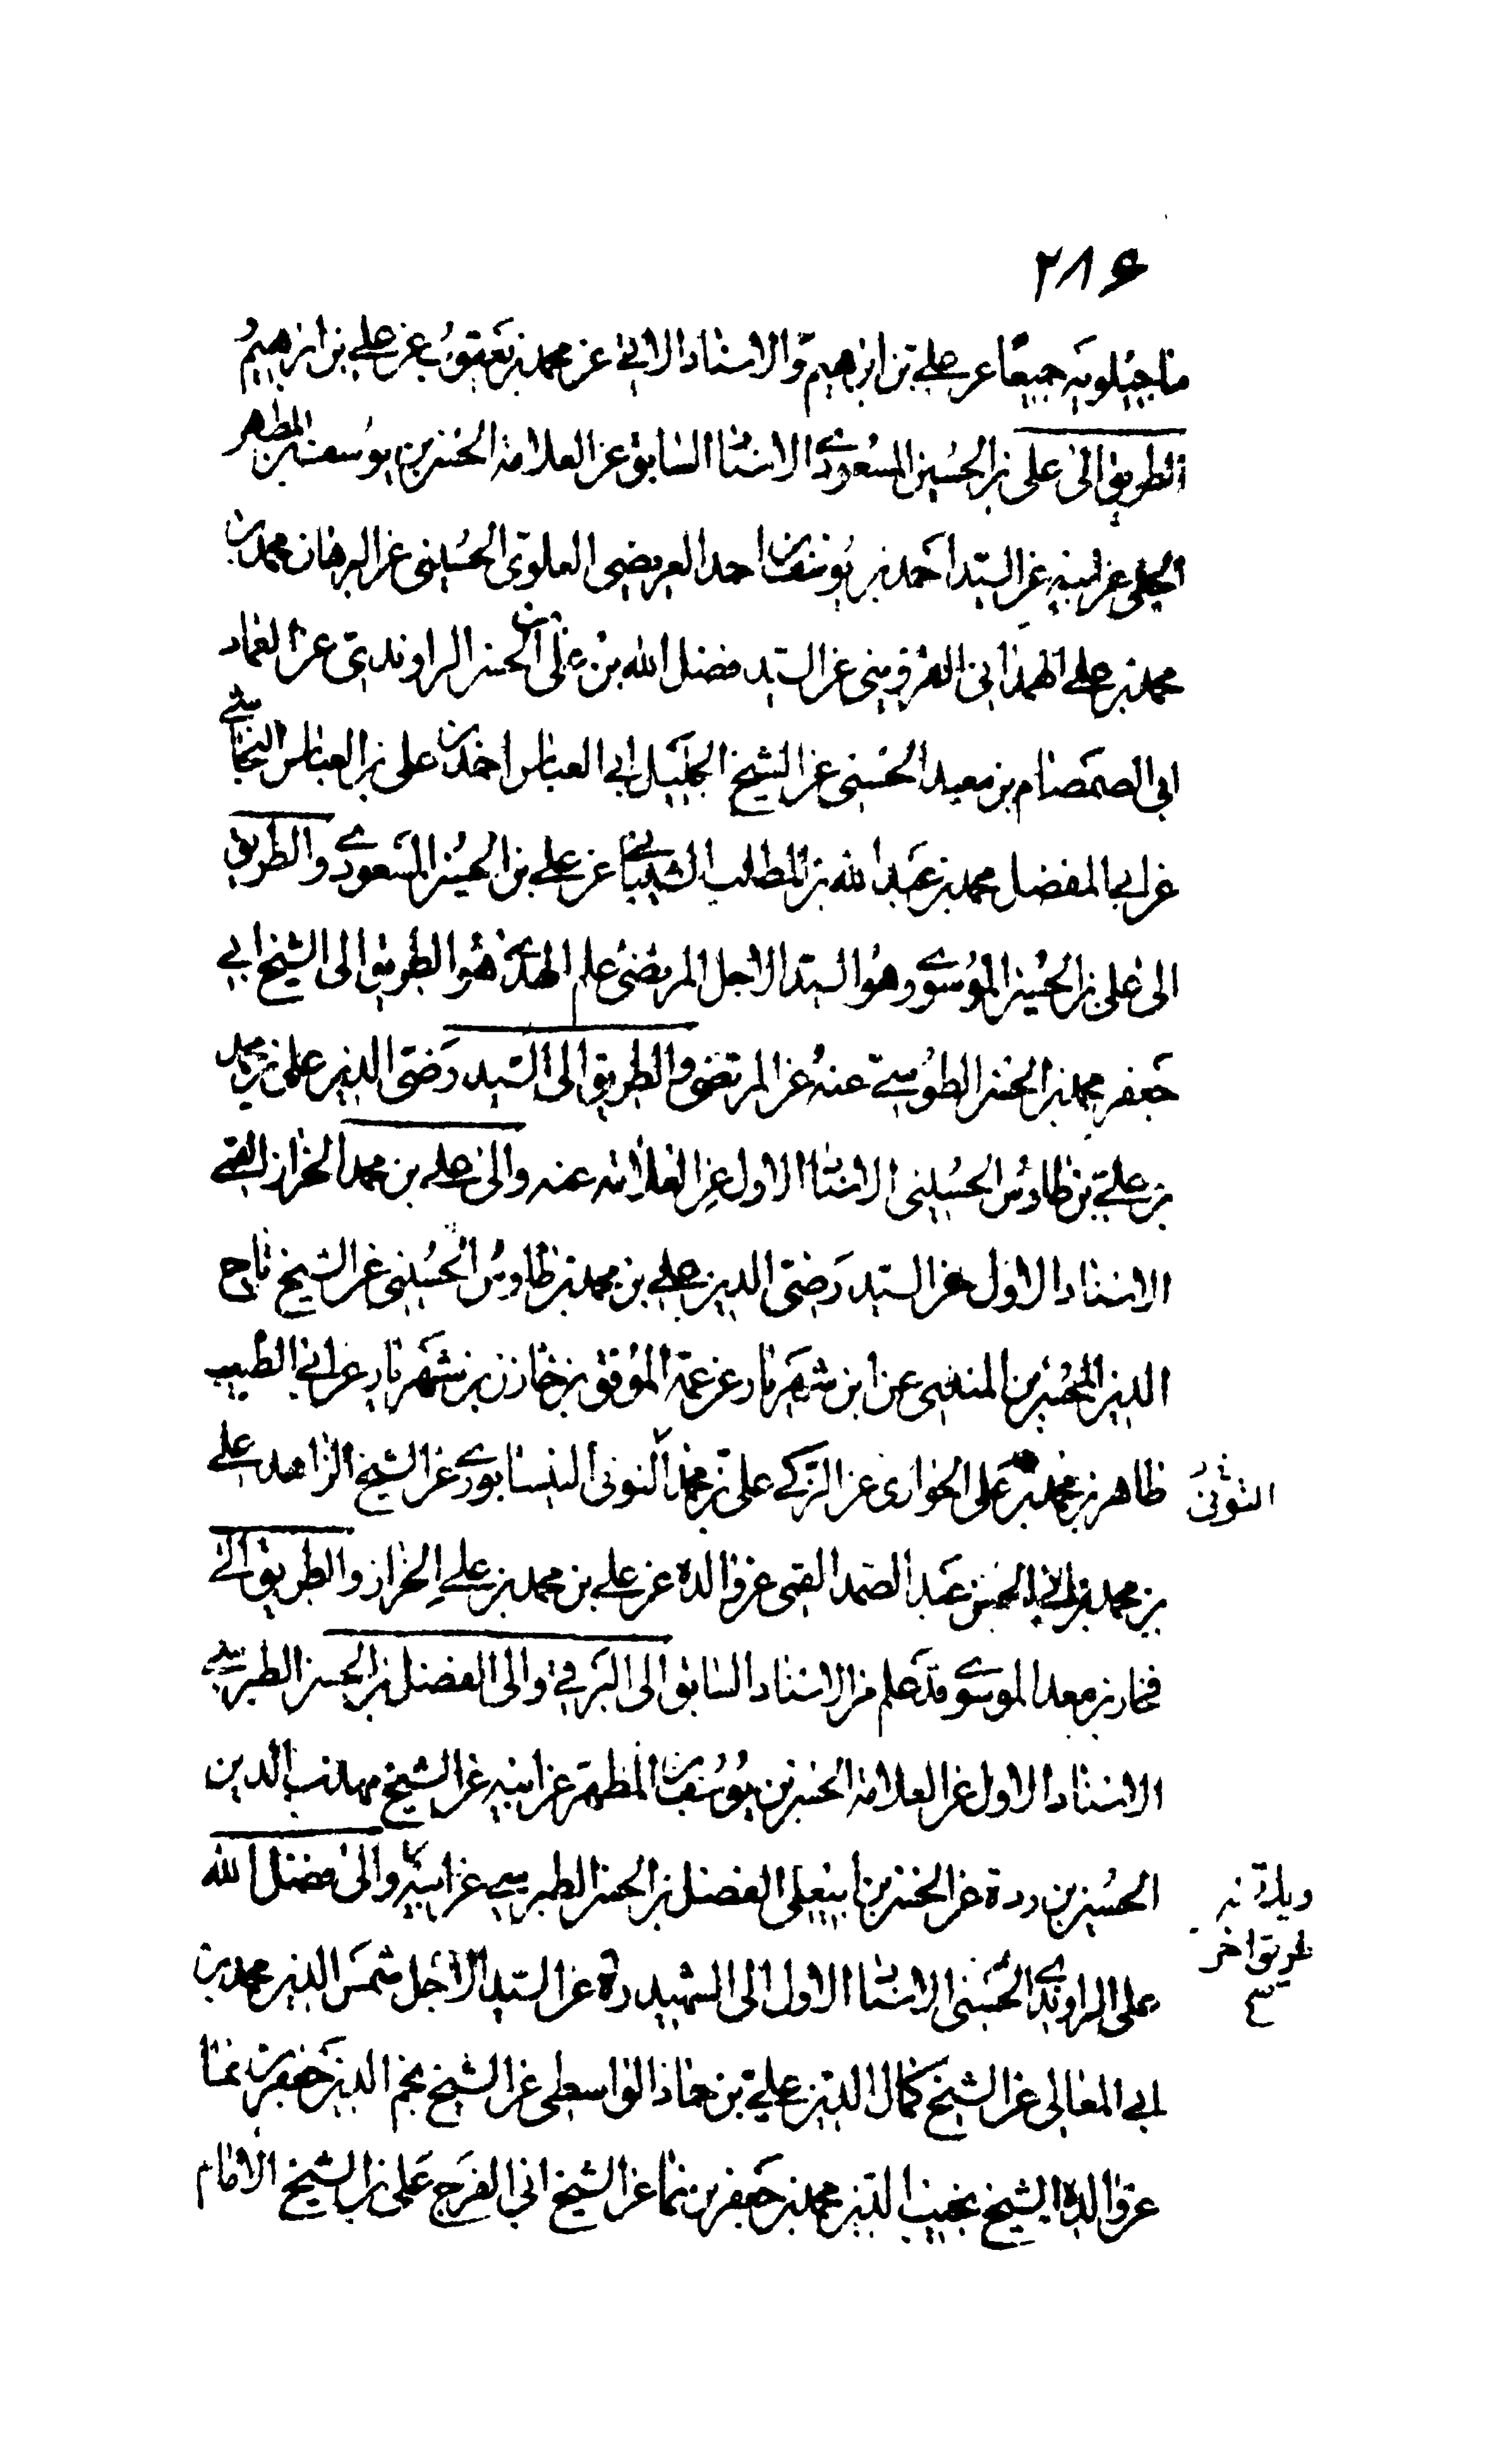 ٢٨۶
ماجيلويه جميعًا عن علي بن ابرهيم والاسناد الاتي عن محمد بن يعقوب عن علي بن ابرهيم
الطريق الى علي بن الحسين المسعودي الاسناد السابق عن العلامة الحسن بن يوسف بن المطهر
الحلي عن ابيه عن السيد احمد بن يوسف بن احمد العريضي العلوي الحسيني عن البرهان محمد بن
محمد بن علي الهمداني القزويني عن السيد فضل الله بن علي بن الحسن الراوندي عن العماد
ابي الصمصام بن معبد الحسني عن الشيخ الجليل ابي العباس احمد بن علي بن العباس النجاشي
عن ابي المفضل محمد بن عبد الله بن المطلب الشيباني عن علي بن الحسين المسعودي والطريق
الى علي بن الحسين الموسوي وهو السيد الاجل المرتضى علم الهدى هو الطريق الى الشيخ ابي
جعفر محمد بن الحسن الطوسي عنه عن المرتضى والطريق الى السيد رضي الدين علي بن محمد
بن علي بن طاوس الحسيني الاسناد الاول عن العلامة عنه والى علي بن محمد الخزاز القمي
الاسناد الاول عن السيد رضي الدين علي بن محمد بن طاوس الحسيني عن الشيخ تاج
الدين الحسن بن السندي عن ابن شهريار عن عمه الموفق بن خازن بن شهريار عن ابي الطيب
طاهر بن محمد بن علي الخواري عن الزكي علي بن محمد النوني النيسابوري عن الشيخ الزاهد علي
التوني
بن محمد بن ابي الحسن عبد الصمد القمي عن والده عن علي بن محمد بن علي الخزاز والطريق الى
فخار بن معد الموسوي قد علم من الاسناد السابق الى البرقي والى الفضل بن الحسن الطبرسي
الاسناد الاول عن العلامة الحسن بن يوسف بن المطهر عن ابيه عن الشيخ مهذب الدين
الحسين بن ردة عن الحسن بن ابي علي الفضل بن الحسن الطبرسي عن ابيه والى فضل الله
طريق اخر
علي الراوندي الحسني الاسناد الاول الى الشهيد ره عن السيد الاجل شمس الدين محمد بن
ابي المعالي عن الشيخ كمال الدين علي بن حماد الواسطي عن الشيخ نجم الدين جعفر بن نما
عن والده الشيخ نجيب الدين محمد بن جعفر بن نما عن الشيخ ابي الفرج علي بن الشيخ الامام